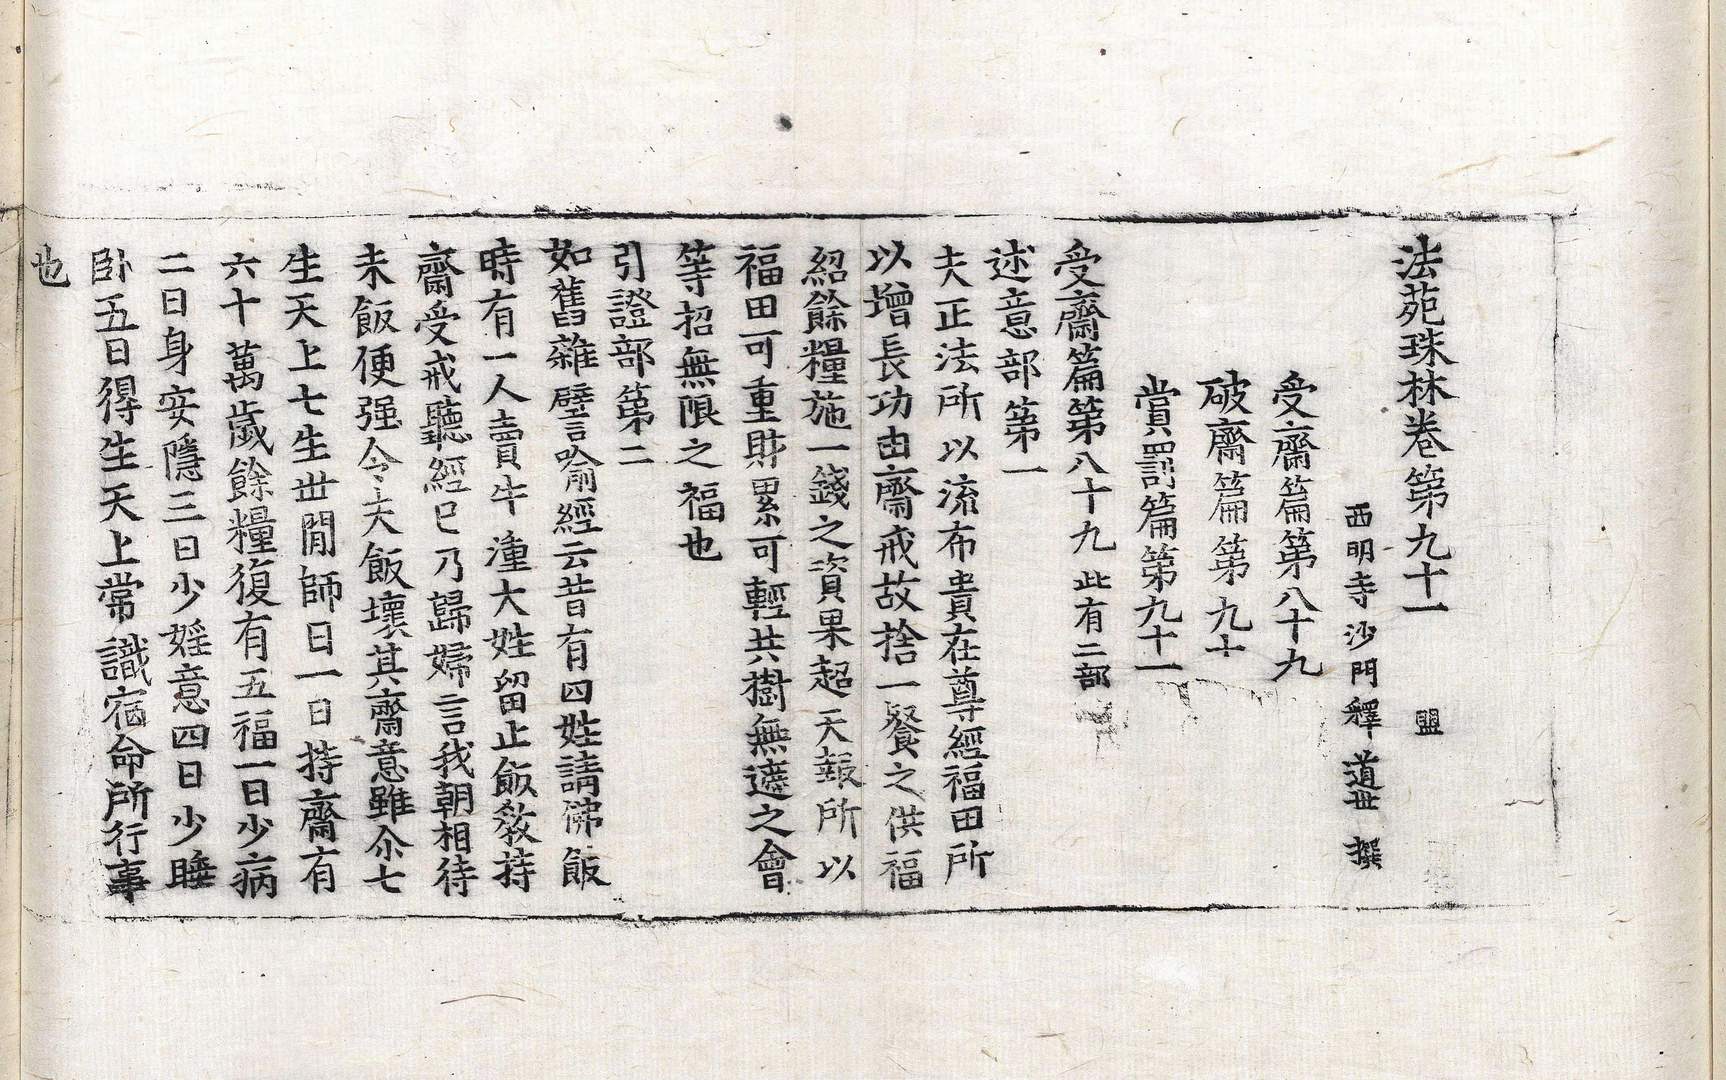 法苑珠林卷第九十一 盟
西明寺沙門釋道世撰
受齋篇第八十九
破齋篇第九十
賞罰篇第九十一
受齋篇第八十九 此有二部
述意部第一
夫正法所以流布貴在尊經福田所
以增長功由齋戒故捨一飡之供福
紹餘糧施一錢之資果超天報所以
福田可重財累可輕共樹無遮之會
等招無限之福也
引證部第二
如舊雜譬喻經云昔有四姓請佛飯
時有一人賣牛湩大姓留止飯教持
齋受戒聽經已乃歸婦言我朝相待
未飯便强令夫飯壞其齋意雖尒七
生天上七生世閒師曰一日持齋有
六十萬歲餘糧復有五福一曰少病
二曰身安隱三曰少婬意四曰少睡
卧五曰得生天上常識宿命所行事
也